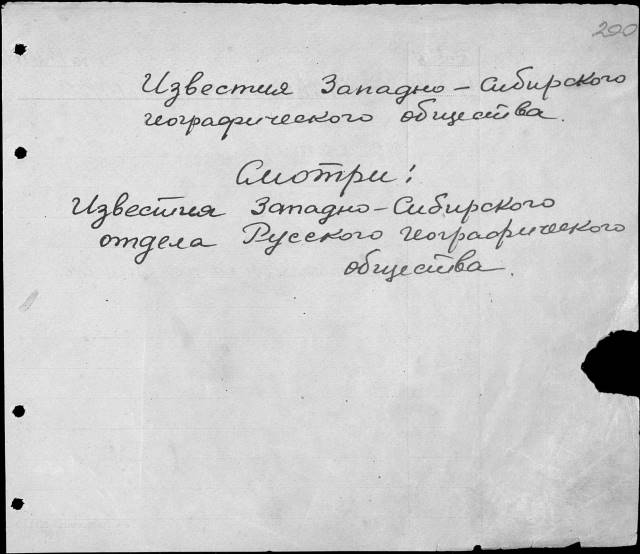 200
Известия Западно-Сибирского
географического общества.
Смотри:
Известия Западно-Сибирского
отдела Русского географического
общества.